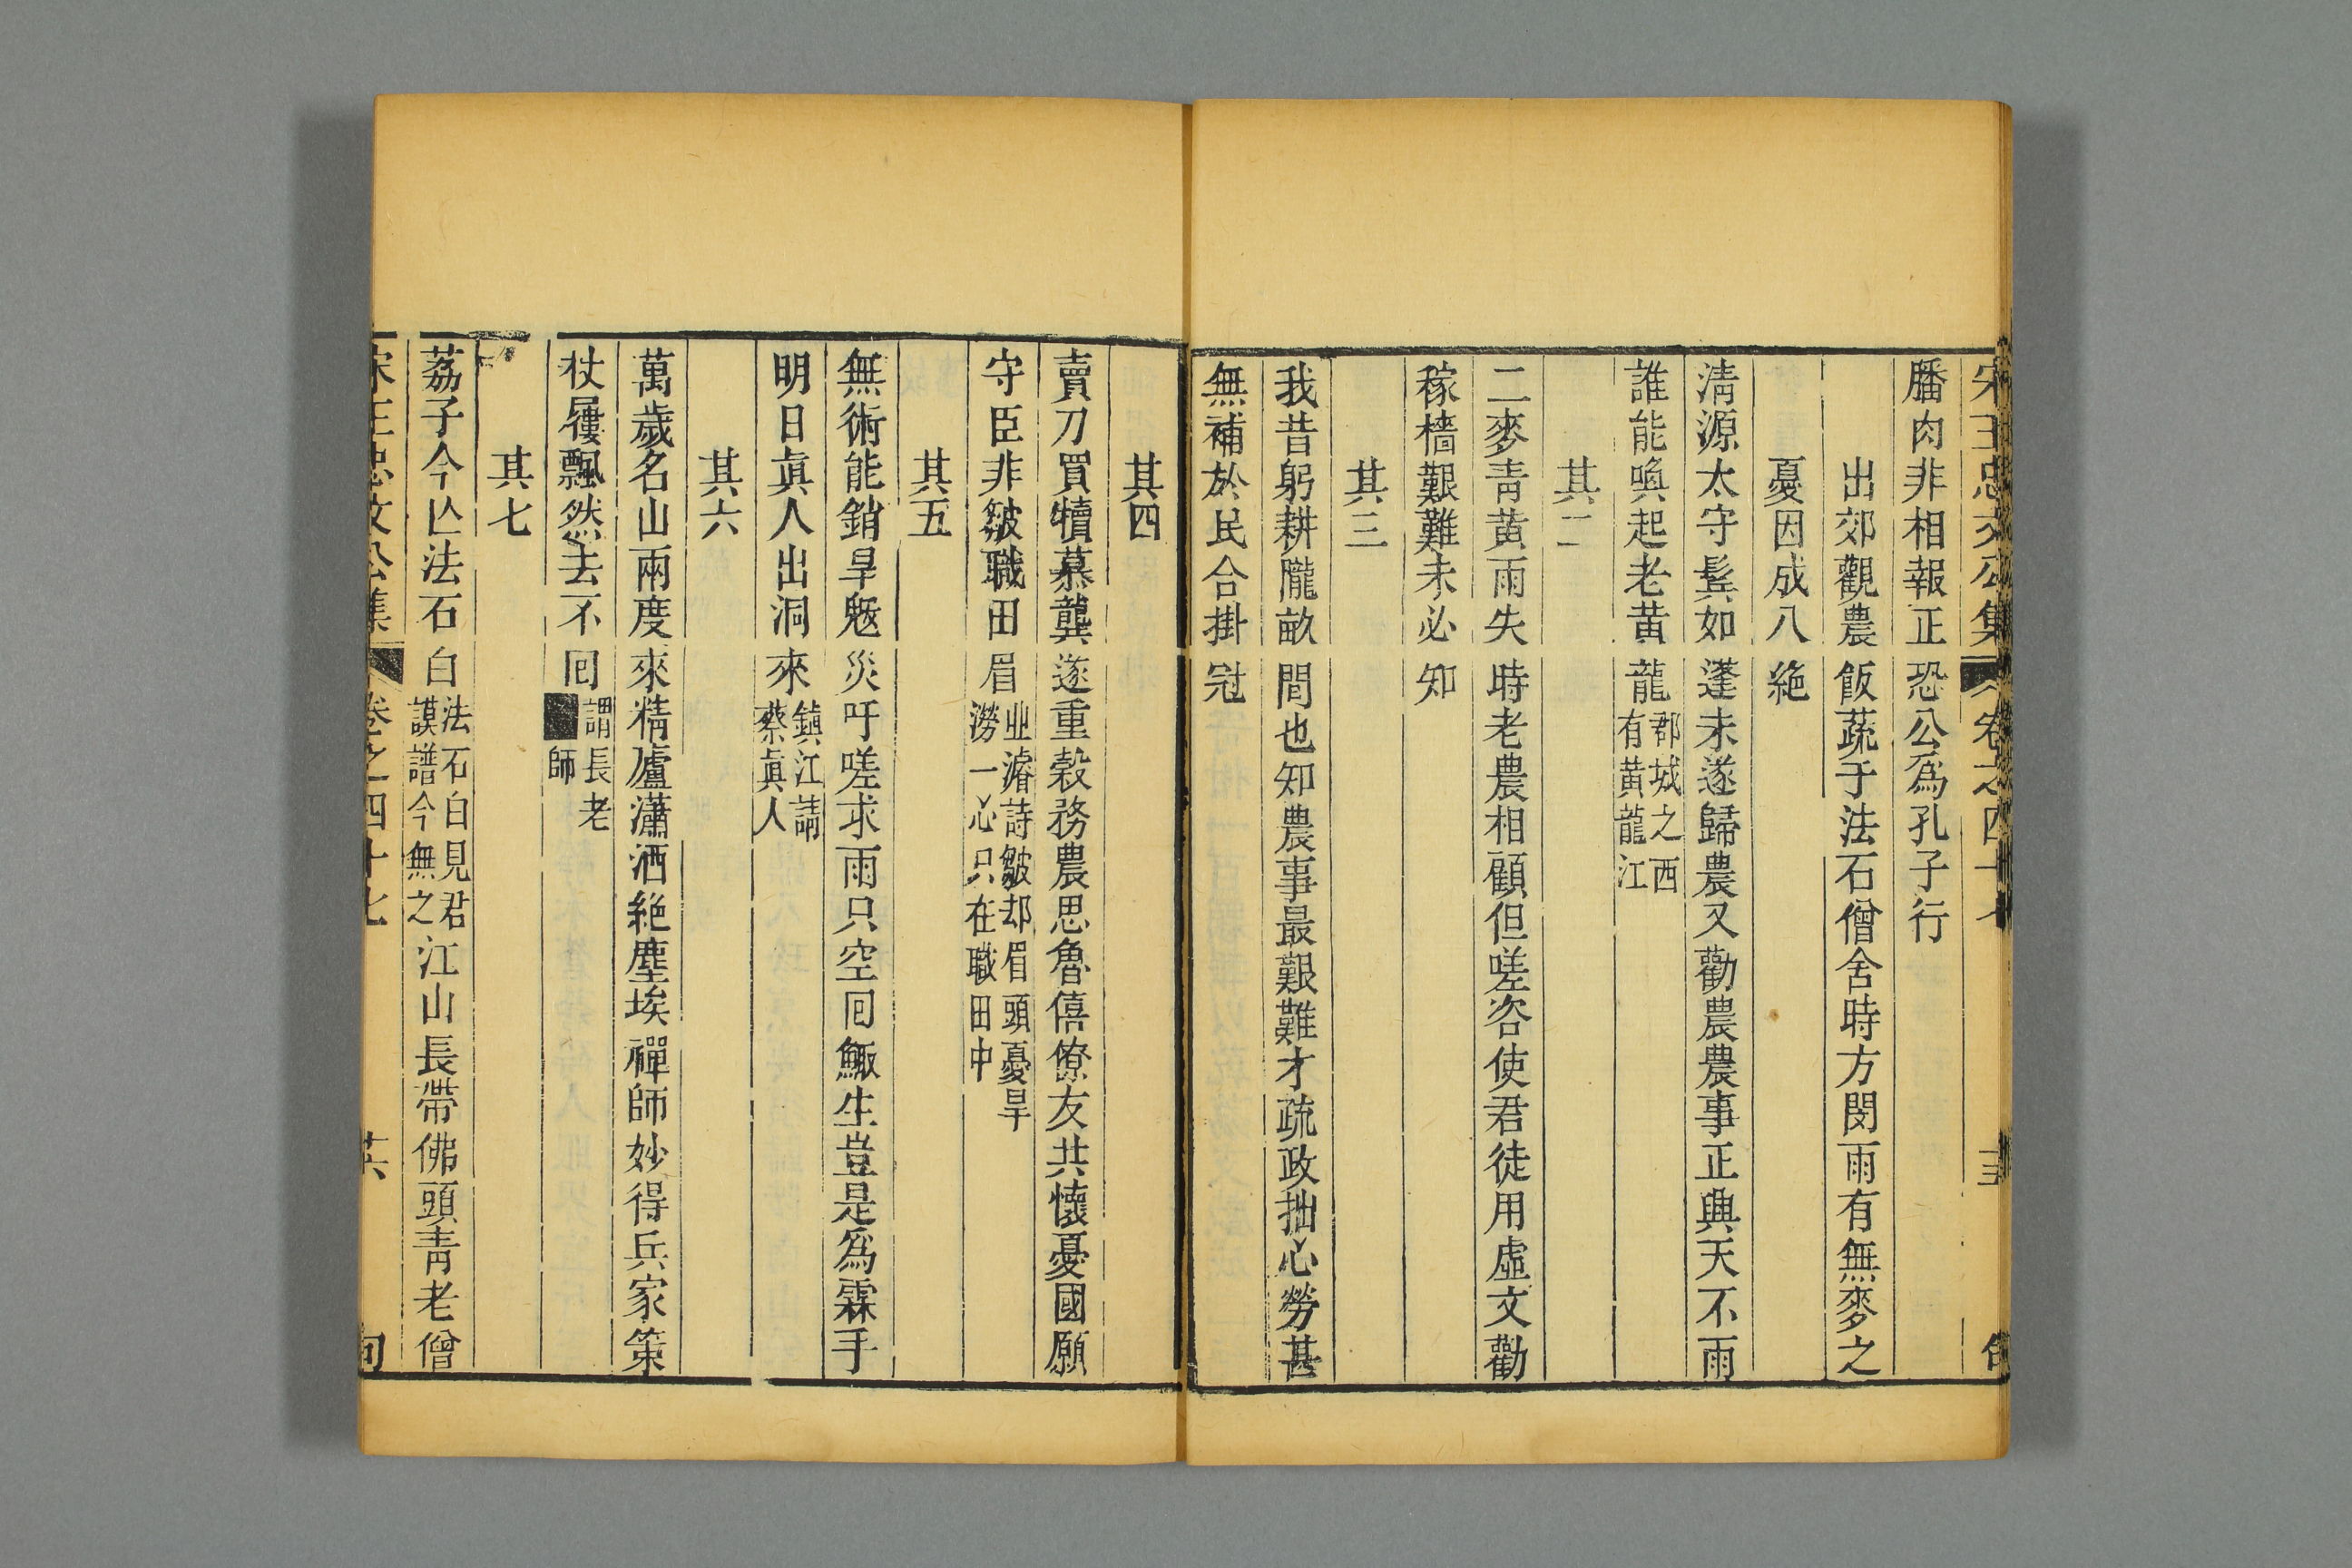 宋王忠文公集 卷之四十七
膰肉非相報正恐公爲孔子行
出郊觀農飯蔬于法石僧舍時方閔雨有無麥之
憂因成八絶
淸源太守鬂如蓬未遂歸農又勸農農事正興天不雨
誰能喚起老黃龍郡城之西有黃龍江
其二
二麥靑黃雨失時老農相顧但嗟咨使君徒用虛文勸
稼穡艱難未必知
其三
我昔躬耕隴畝間也知農事最艱難才疏政拙心勞甚
無補於民合掛冠
其四
賣刀買犢慕龔遂重穀務農思魯僖僚友共懷憂國願
守臣非皺職田眉業濬詩皺却眉頭憂旱澇一心只在職田中
其五
無術能銷旱魃災吁嗟求雨只空囘鯫生豈是爲霖手
明日眞人出洞來鎮江請蔡眞人
其六
萬歲名山兩度來精廬瀟洒絶塵埃禪師妙得兵家策
杖屨飄然去不囘謂長老師
其七
荔子今亾法石白法石白見君謨譜今無之江山長帶佛頭靑老僧
宋王忠文公集 卷之四十七